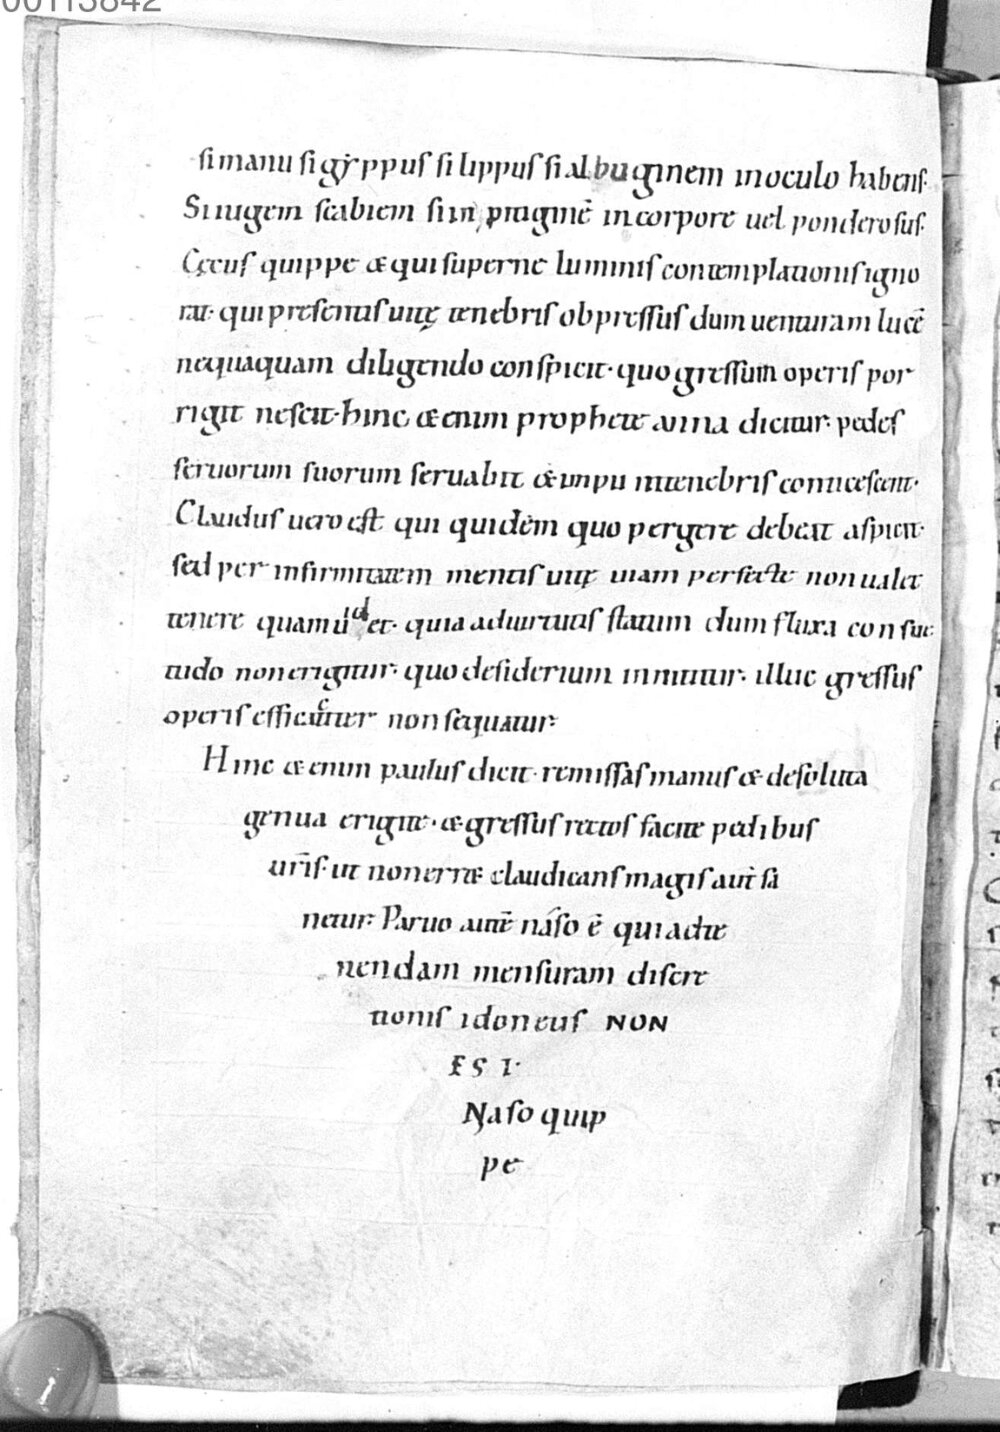 00113842
si manu si gyppus si lippus si albuginem in oculo habens.
Si iugem scabiem si inpetiginē in corpore uel ponderosus.
Cęcus quippe & qui superne luminis contemplationis igno
rat. qui presentis uitę tenebris obpressus dum uenturam lucē
nequaquam diligendo conspicit. quo gressum operis por
rigit nescit. hinc & enim prophete anna dicitur. pedes
seruorum suorum seruabit & impii in tenebris conticescent.
Claudus uero est qui quidem quo pergere debeat aspicit.
sed per infirmitatem mentis uitę uiam perfecte non ualet
tenere quam uidet. quia ad uirtutis statum dum fluxa consue
tudo non erigitur. quo desiderium innititur. illuc gressus
operis efficaciter non sequatur.
Hinc & enim paulus dicit. remissas manus & desoluta
genua erigite. & gressus rectos facite pedibus
uris. ut non erret claudicans magis aut sa
netur. Paruo autē naso ē qui ad te
nendam mensuram discre
tionis idoneus NON
EST.
Naso quip
pe